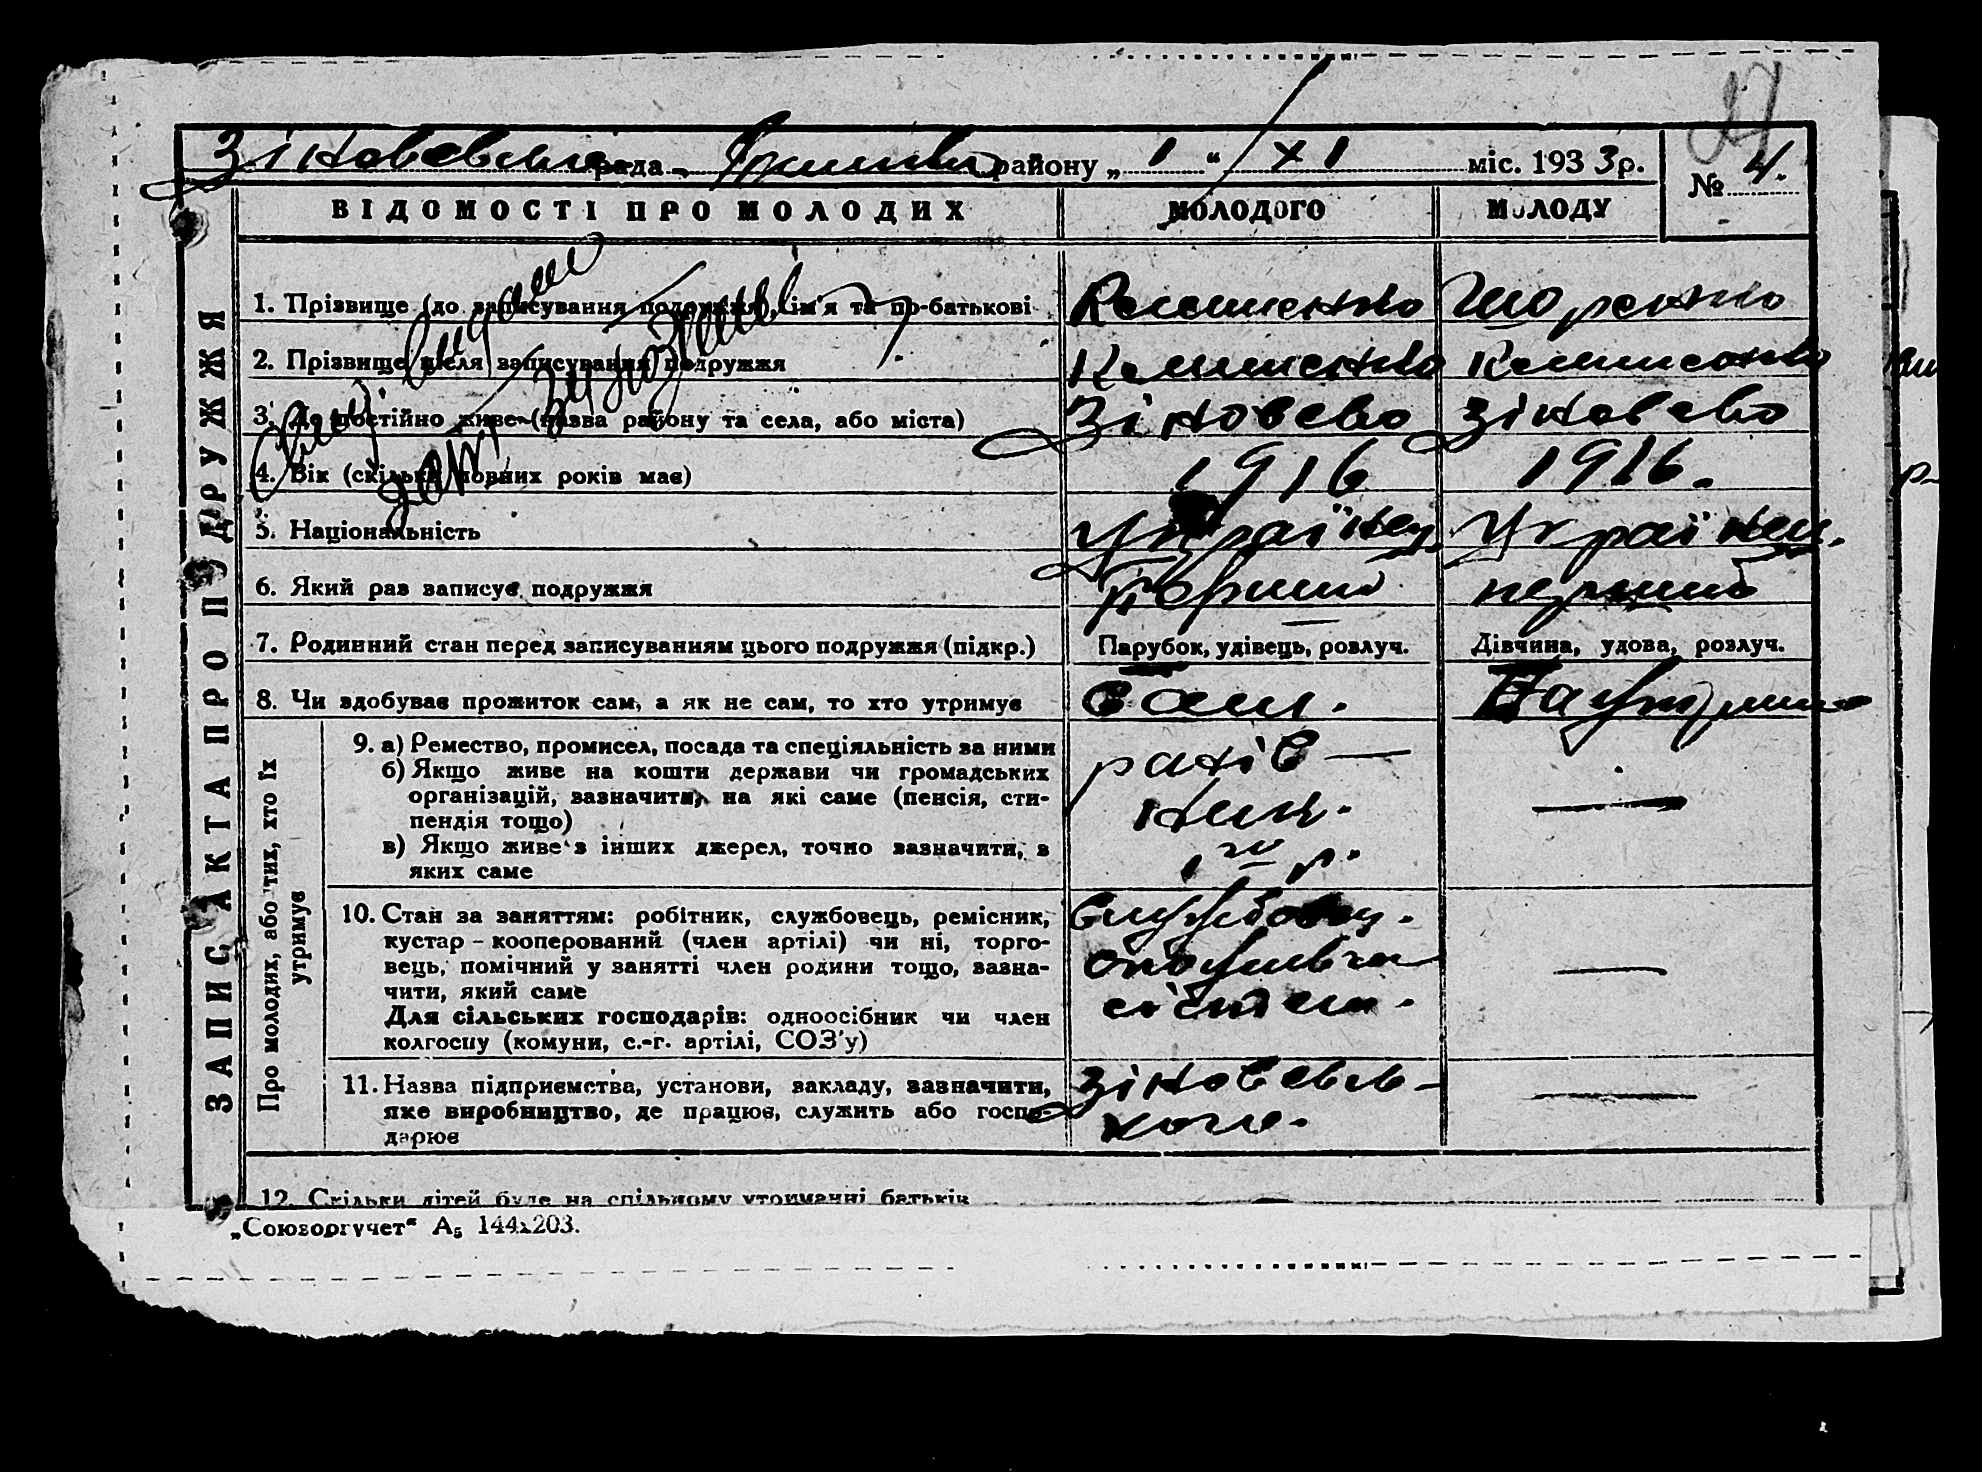 рада району „ 1 “ XI міс. 1933 р.
№ 4.
ВІДОМОСТІ ПРО МОЛОДИХ МОЛОДОГО МОЛОДУ
ЗАПИС АКТА ПРО ПОДРУЖЖЯ
1. Прізвище (до записування подружжя), ім'я та по-батькові
2. Прізвище після записування подружжя
3. Де постійно живе (назва району та села, або міста) Зіновєво Зіновєво
4. Вік (скільки повних років має) 1916 1916.
5. Національність Українец Українец.
6. Який раз записує подружжя перший перший
7. Родинний стан перед записуванням цього подружжя (підкр.) Парубок, удівець, розлуч. Дівчина, удова, розлуч.
8. Чи здобував прожиток сам, а як не сам, то хто утримує Сам.
Про молодих, або тих, хто їх утримує
9. а) Ремество, промисел, посада та спеціяльність за ними
б) Якщо живе на кошти держави чи громадських
організацій, зазначити, на які саме (пенсія, сти-
пендія тощо)
в) Якщо живе з інших джерел, точно зазначити, з
яких саме
рахів—
ник.
—
10. Стан за заняттям: робітник, службовець, ремісник,
кустар - кооперований (член артілі) чи ні, торго-
вець, помічний у занятті член родини тощо, зазна-
чити, який саме
Для сільських господарів: одноосібник чи член
колгоспу (комуни, с.-г. артілі, СОЗ'у)
Службовец.
—
11. Назва підприємства, установи, закладу, зазначити,
яке виробництво, де працює, служить або госпо-
дарює
Зіновєвсь-
кого.
—
12. Скільки дітей буде на спільному утриманні батьків
„Союзоргучет“ А5 144х203.